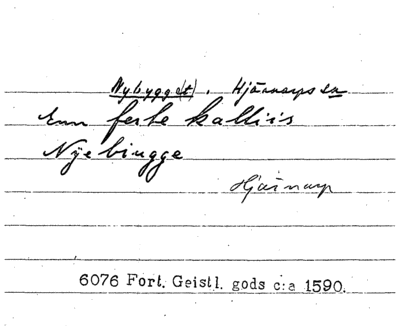 Nybygg(et). Hjärnarps sn
Enn ferste kalliis
Nÿe biugge
Hjärnarp
6076 Fort. Geistl. gods c:a 1590.